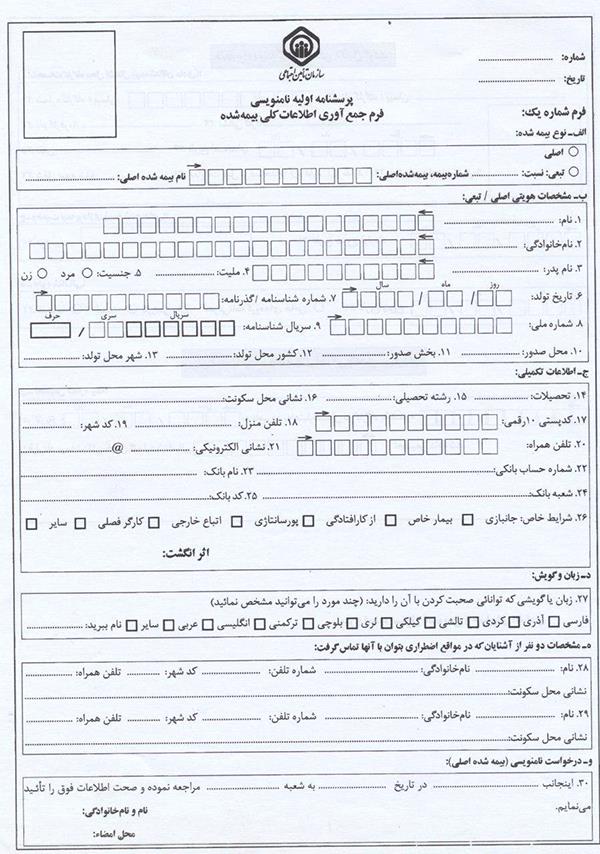 سازمان تأمین اجتماعی
شماره:
تاریخ:
پرسشنامه اولیه نامنویسی
فرم شماره یک:
فرم جمع آوری اطلاعات کلی بیمه شده
الف ـ نوع بیمه شده:
اصلی
تبعی: نسبت: شماره بیمه، بیمه شده اصلی: نام بیمه شده اصلی:
ب ـ مشخصات هویتی اصلی / تبعی:
۱. نام:
۲. نام خانوادگی:
۳. نام پدر: ۴. ملیت: ۵. جنسیت: مرد زن
روز ماه سال
۶. تاریخ تولد: / / ۷. شماره شناسنامه / گذرنامه:
سریال سری حرف
۸. شماره ملی: ۹. سریال شناسنامه: /
۱۰. محل صدور: ۱۱. بخش صدور: ۱۲. کشور محل تولد: ۱۳. شهر محل تولد:
ج ـ اطلاعات تکمیلی:
۱۴. تحصیلات: ۱۵. رشته تحصیلی: ۱۶. نشانی محل سکونت:
۱۷. کدپستی ۱۰ رقمی: ۱۸. تلفن منزل: ۱۹. کد شهر:
۲۰. تلفن همراه: ۲۱. نشانی الکترونیکی: @
۲۲. شماره حساب بانکی: ۲۳. نام بانک:
۲۴. شعبه بانک: ۲۵. کد بانک:
۲۶. شرایط خاص: جانبازی بیمار خاص از کارافتادگی پورسانتاژی اتباع خارجی کارگر فصلی سایر
اثر انگشت:
د ـ زبان و گویش:
۲۷. زبان یا گویشی که توانائی صحبت کردن با آن را دارید: (چند مورد را می‌توانید مشخص نمائید)
فارسی آذری کردی تالشی گیلکی لری بلوچی ترکمنی انگلیسی عربی سایر نام ببرید:
ه ـ مشخصات دو نفر از آشنایان که در مواقع اضطراری بتوان با آنها تماس گرفت:
۲۸. نام: نام خانوادگی: شماره تلفن: کد شهر: تلفن همراه:
نشانی محل سکونت:
۲۹. نام: نام خانوادگی: شماره تلفن: کد شهر: تلفن همراه:
نشانی محل سکونت:
و ـ درخواست نامنویسی (بیمه شده اصلی):
۳۰. اینجانب در تاریخ به شعبه مراجعه نموده و صحت اطلاعات فوق را تأئید
می‌نمایم.
نام و نام خانوادگی:
محل امضاء: